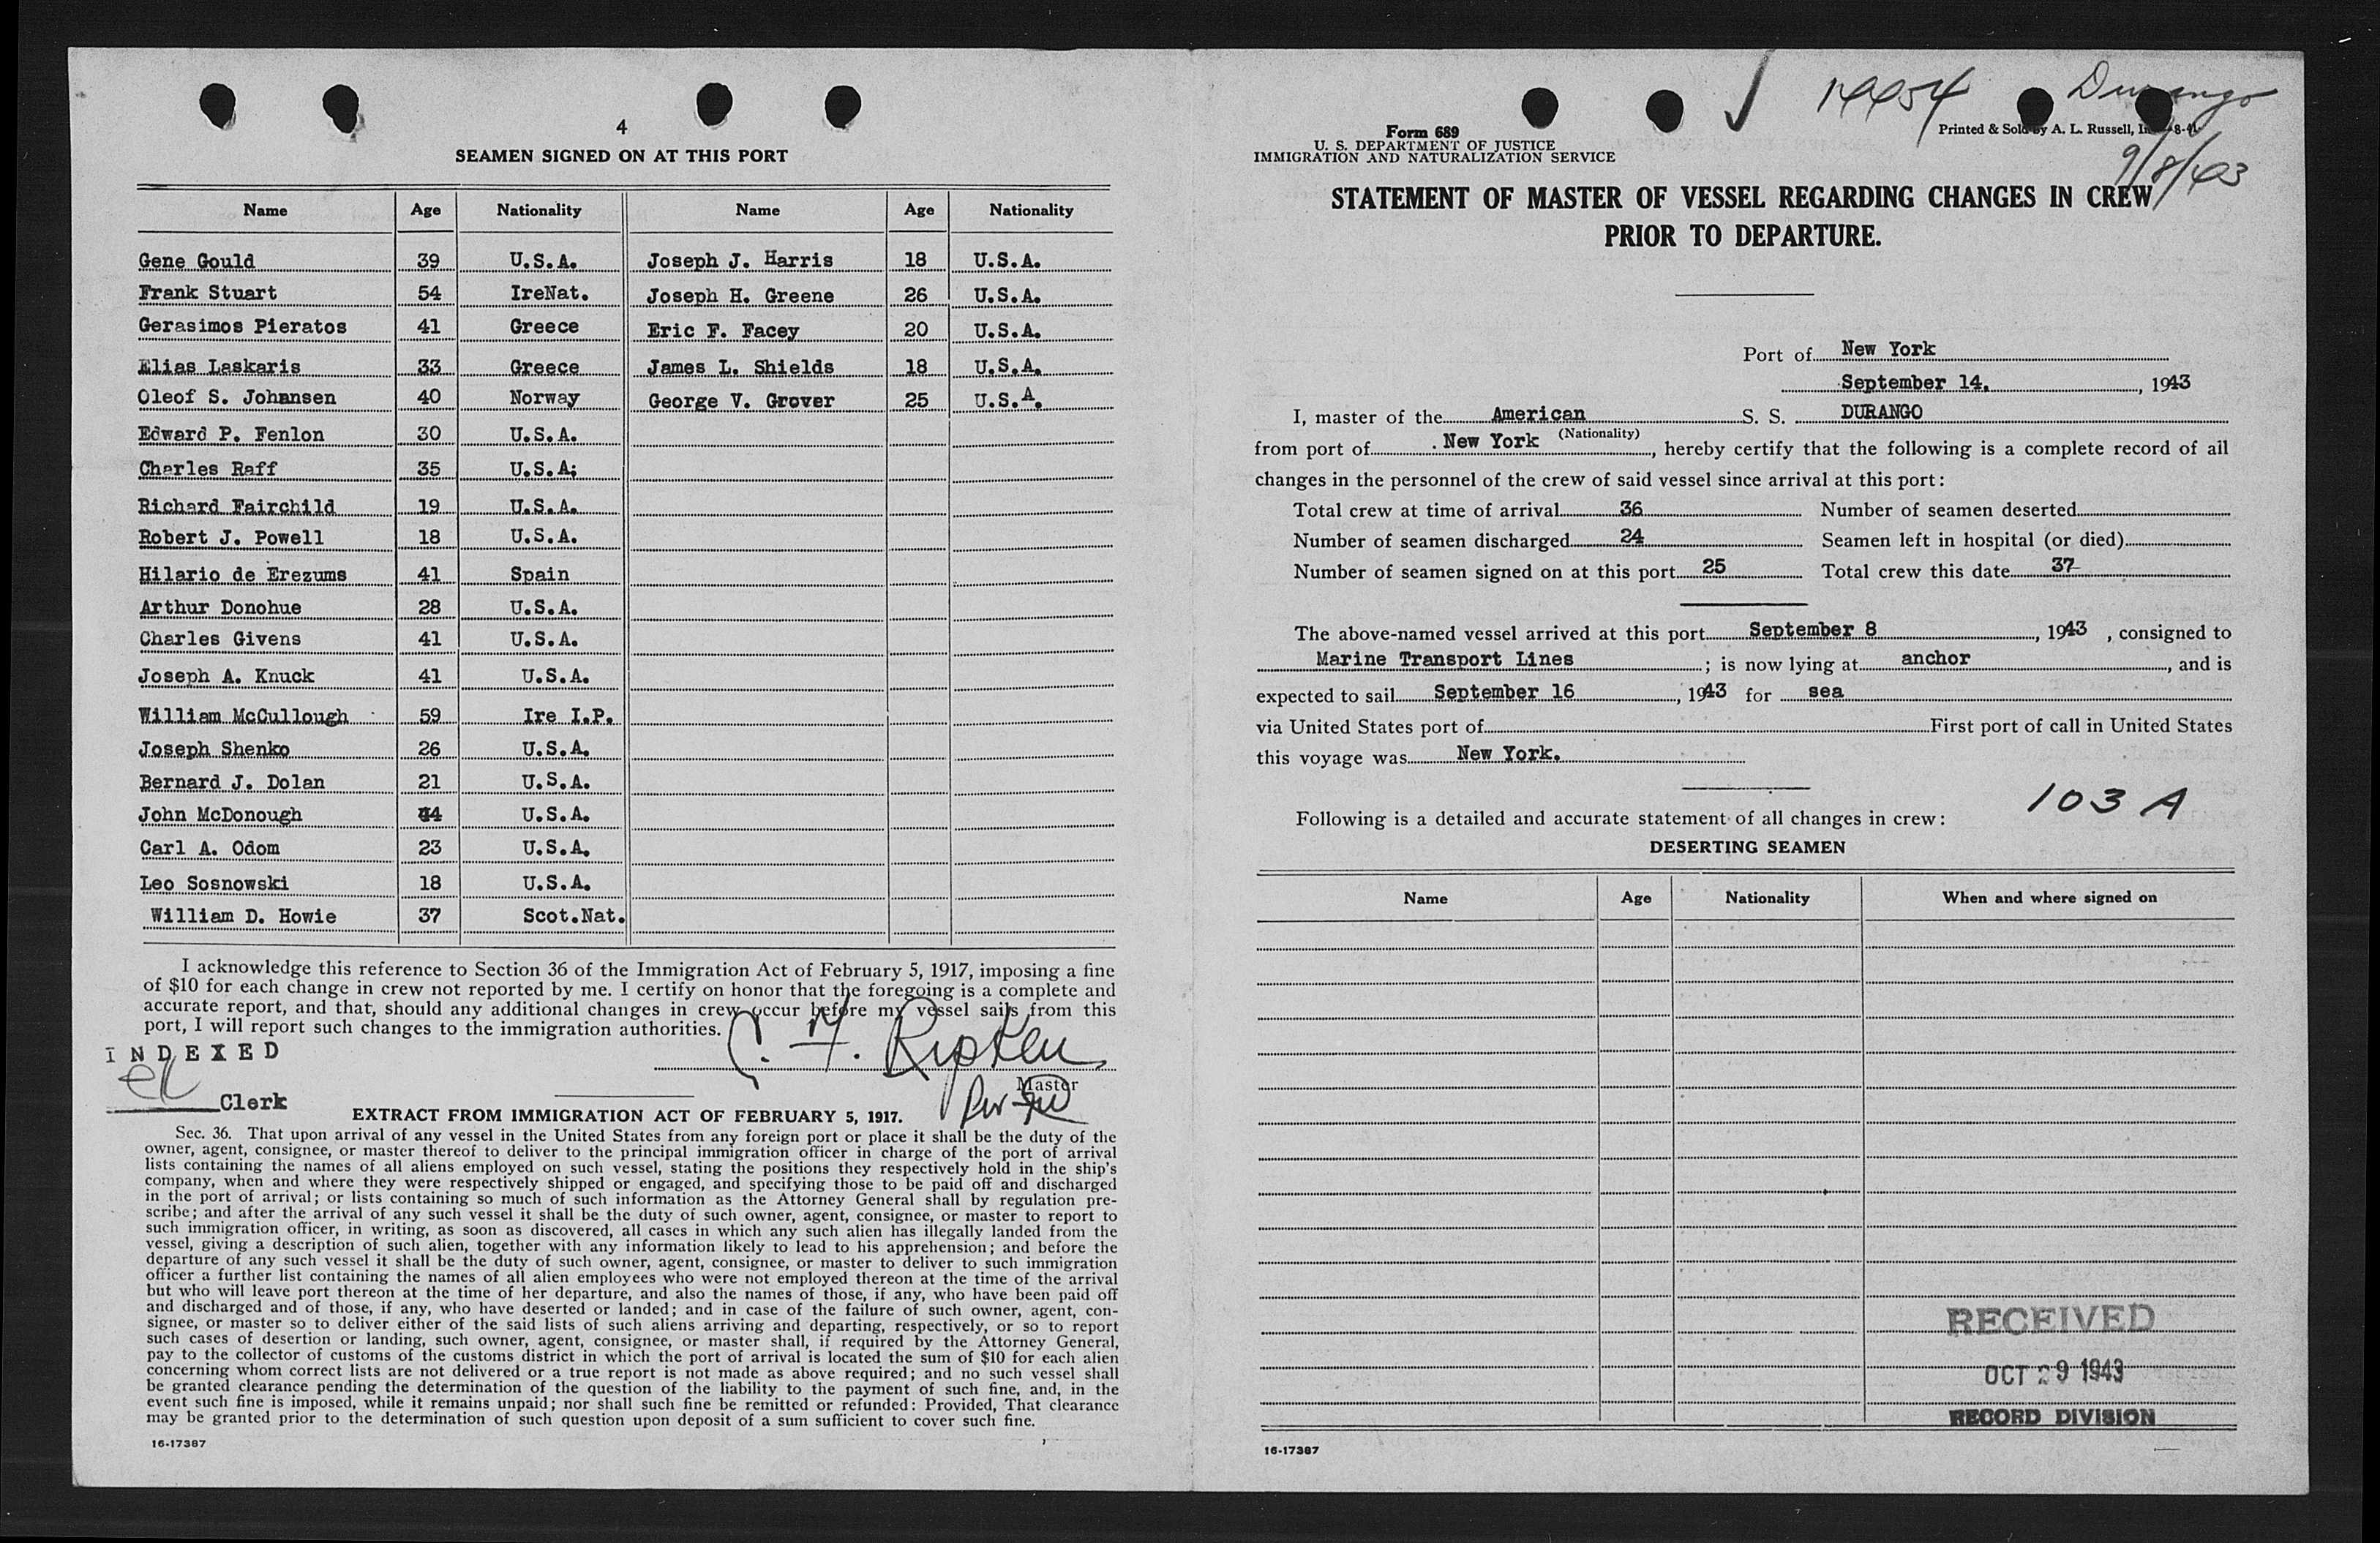 4
SEAMEN SIGNED ON AT THIS PORT
Name Age Nationality Name Age Nationality
Gene Gould 39 U.S.A. Joseph J. Harris 18 U.S.A.
Frank Stuart 54 IreNat. Joseph H. Greene 26 U.S.A.
Gerasimos Pieratos 41 Greece Eric F. Facey 20 U.S.A.
Elias Laskaris 33 Greece James L. Shields 18 U.S.A.
Oleof S. Johansen 40 Norway George V. Grover 25 U.S.A.
Edward P. Fenlon 30 U.S.A.
Charles Raff 35 U.S.A;
Richard Fairchild 19 U.S.A.
Robert J. Powell 18 U.S.A.
Hilario de Erezums 41 Spain
Arthur Donohue 28 U.S.A.
Charles Givens 41 U.S.A.
Joseph A. Knuck 41 U.S.A.
William McCullough 59 Ire I.P.
Joseph Shenko 26 U.S.A.
Bernard J. Dolan 21 U.S.A.
John McDonough 44 U.S.A.
Carl A. Odom 23 U.S.A.
Leo Sosnowski 18 U.S.A.
William D. Howie 37 Scot.Nat.
I acknowledge this reference to Section 36 of the Immigration Act of February 5, 1917, imposing a fine
of $10 for each change in crew not reported by me. I certify on honor that the foregoing is a complete and
accurate report, and that, should any additional changes in crew occur before my vessel sails from this
port, I will report such changes to the immigration authorities.
INDEXED
C. H. Ripken
Master
Clerk
Per
EXTRACT FROM IMMIGRATION ACT OF FEBRUARY 5, 1917.
Sec. 36. That upon arrival of any vessel in the United States from any foreign port or place it shall be the duty of the
owner, agent, consignee, or master thereof to deliver to the principal immigration officer in charge of the port of arrival
lists containing the names of all aliens employed on such vessel, stating the positions they respectively hold in the ship's
company, when and where they were respectively shipped or engaged, and specifying those to be paid off and discharged
in the port of arrival; or lists containing so much of such information as the Attorney General shall by regulation pre-
scribe; and after the arrival of any such vessel it shall be the duty of such owner, agent, consignee, or master to report to
such immigration officer, in writing, as soon as discovered, all cases in which any such alien has illegally landed from the
vessel, giving a description of such alien, together with any information likely to lead to his apprehension; and before the
departure of any such vessel it shall be the duty of such owner, agent, consignee, or master to deliver to such immigration
officer a further list containing the names of all alien employees who were not employed thereon at the time of the arrival
but who will leave port thereon at the time of her departure, and also the names of those, if any, who have been paid off
and discharged and of those, if any, who have deserted or landed; and in case of the failure of such owner, agent, con-
signee, or master so to deliver either of the said lists of such aliens arriving and departing, respectively, or so to report
such cases of desertion or landing, such owner, agent, consignee, or master shall, if required by the Attorney General,
pay to the collector of customs of the customs district in which the port of arrival is located the sum of $10 for each alien
concerning whom correct lists are not delivered or a true report is not made as above required; and no such vessel shall
be granted clearance pending the determination of the question of the liability to the payment of such fine, and, in the
event such fine is imposed, while it remains unpaid; nor shall such fine be remitted or refunded: Provided, That clearance
may be granted prior to the determination of such question upon deposit of a sum sufficient to cover such fine.
16-17387
Durango
Form 689
U. S. DEPARTMENT OF JUSTICE
IMMIGRATION AND NATURALIZATION SERVICE
Printed & Sold by A. L. Russell,
9/8/43
STATEMENT OF MASTER OF VESSEL REGARDING CHANGES IN CREW
PRIOR TO DEPARTURE.
Port of New York
September 14, , 1943
I, master of the American S. S. DURANGO
(Nationality)
from port of New York , hereby certify that the following is a complete record of all
changes in the personnel of the crew of said vessel since arrival at this port:
Total crew at time of arrival 36 Number of seamen deserted
Number of seamen discharged 24 Seamen left in hospital (or died)
Number of seamen signed on at this port 25 Total crew this date 37
The above-named vessel arrived at this port September 8 , 1943 , consigned to
Marine Transport Lines ; is now lying at anchor , and is
expected to sail September 16 , 1943 for sea
via United States port of First port of call in United States
this voyage was New York.
103 A
Following is a detailed and accurate statement of all changes in crew:
DESERTING SEAMEN
Name Age Nationality When and where signed on
RECEIVED
OCT 29 1943
RECORD DIVISION
16-17387